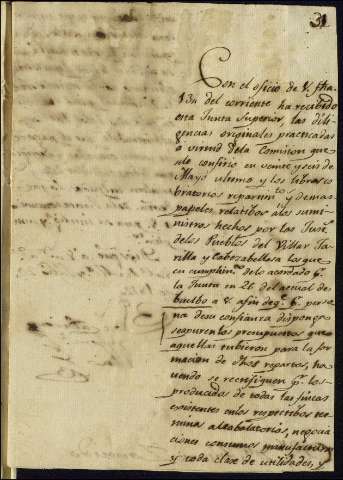 31
Con el oficio de V. fha.
13 del corriente ha recivido
esta Junta Superior, las dili
gencias originales practicadas
á virtud dela Comision que
se le confirio en veinte y seis de
Mayo ultimo y los libros co
bratorios repartim.tos y demas
papeles relatibos alos sumi
nistros hechos por las Just.
delos Pueblos del Villar
y Cabezabellosa los que
en cumplim.to delo acordado p.r
la Junta en 21 del actual de
buelbo a V. afin de q.e p.r perso
na desu confianza disponga
se apuren los presupuestos que
aquellas tubieron para la for
macion de dhos repartos, ha
ciendo se rectifiquen p.r los
producidos de todas las fincas
existentes enlos respectibos ter
minos alcabalatorios, negocia
ciones consumos manufacturas
y toda clase de utilidades, y